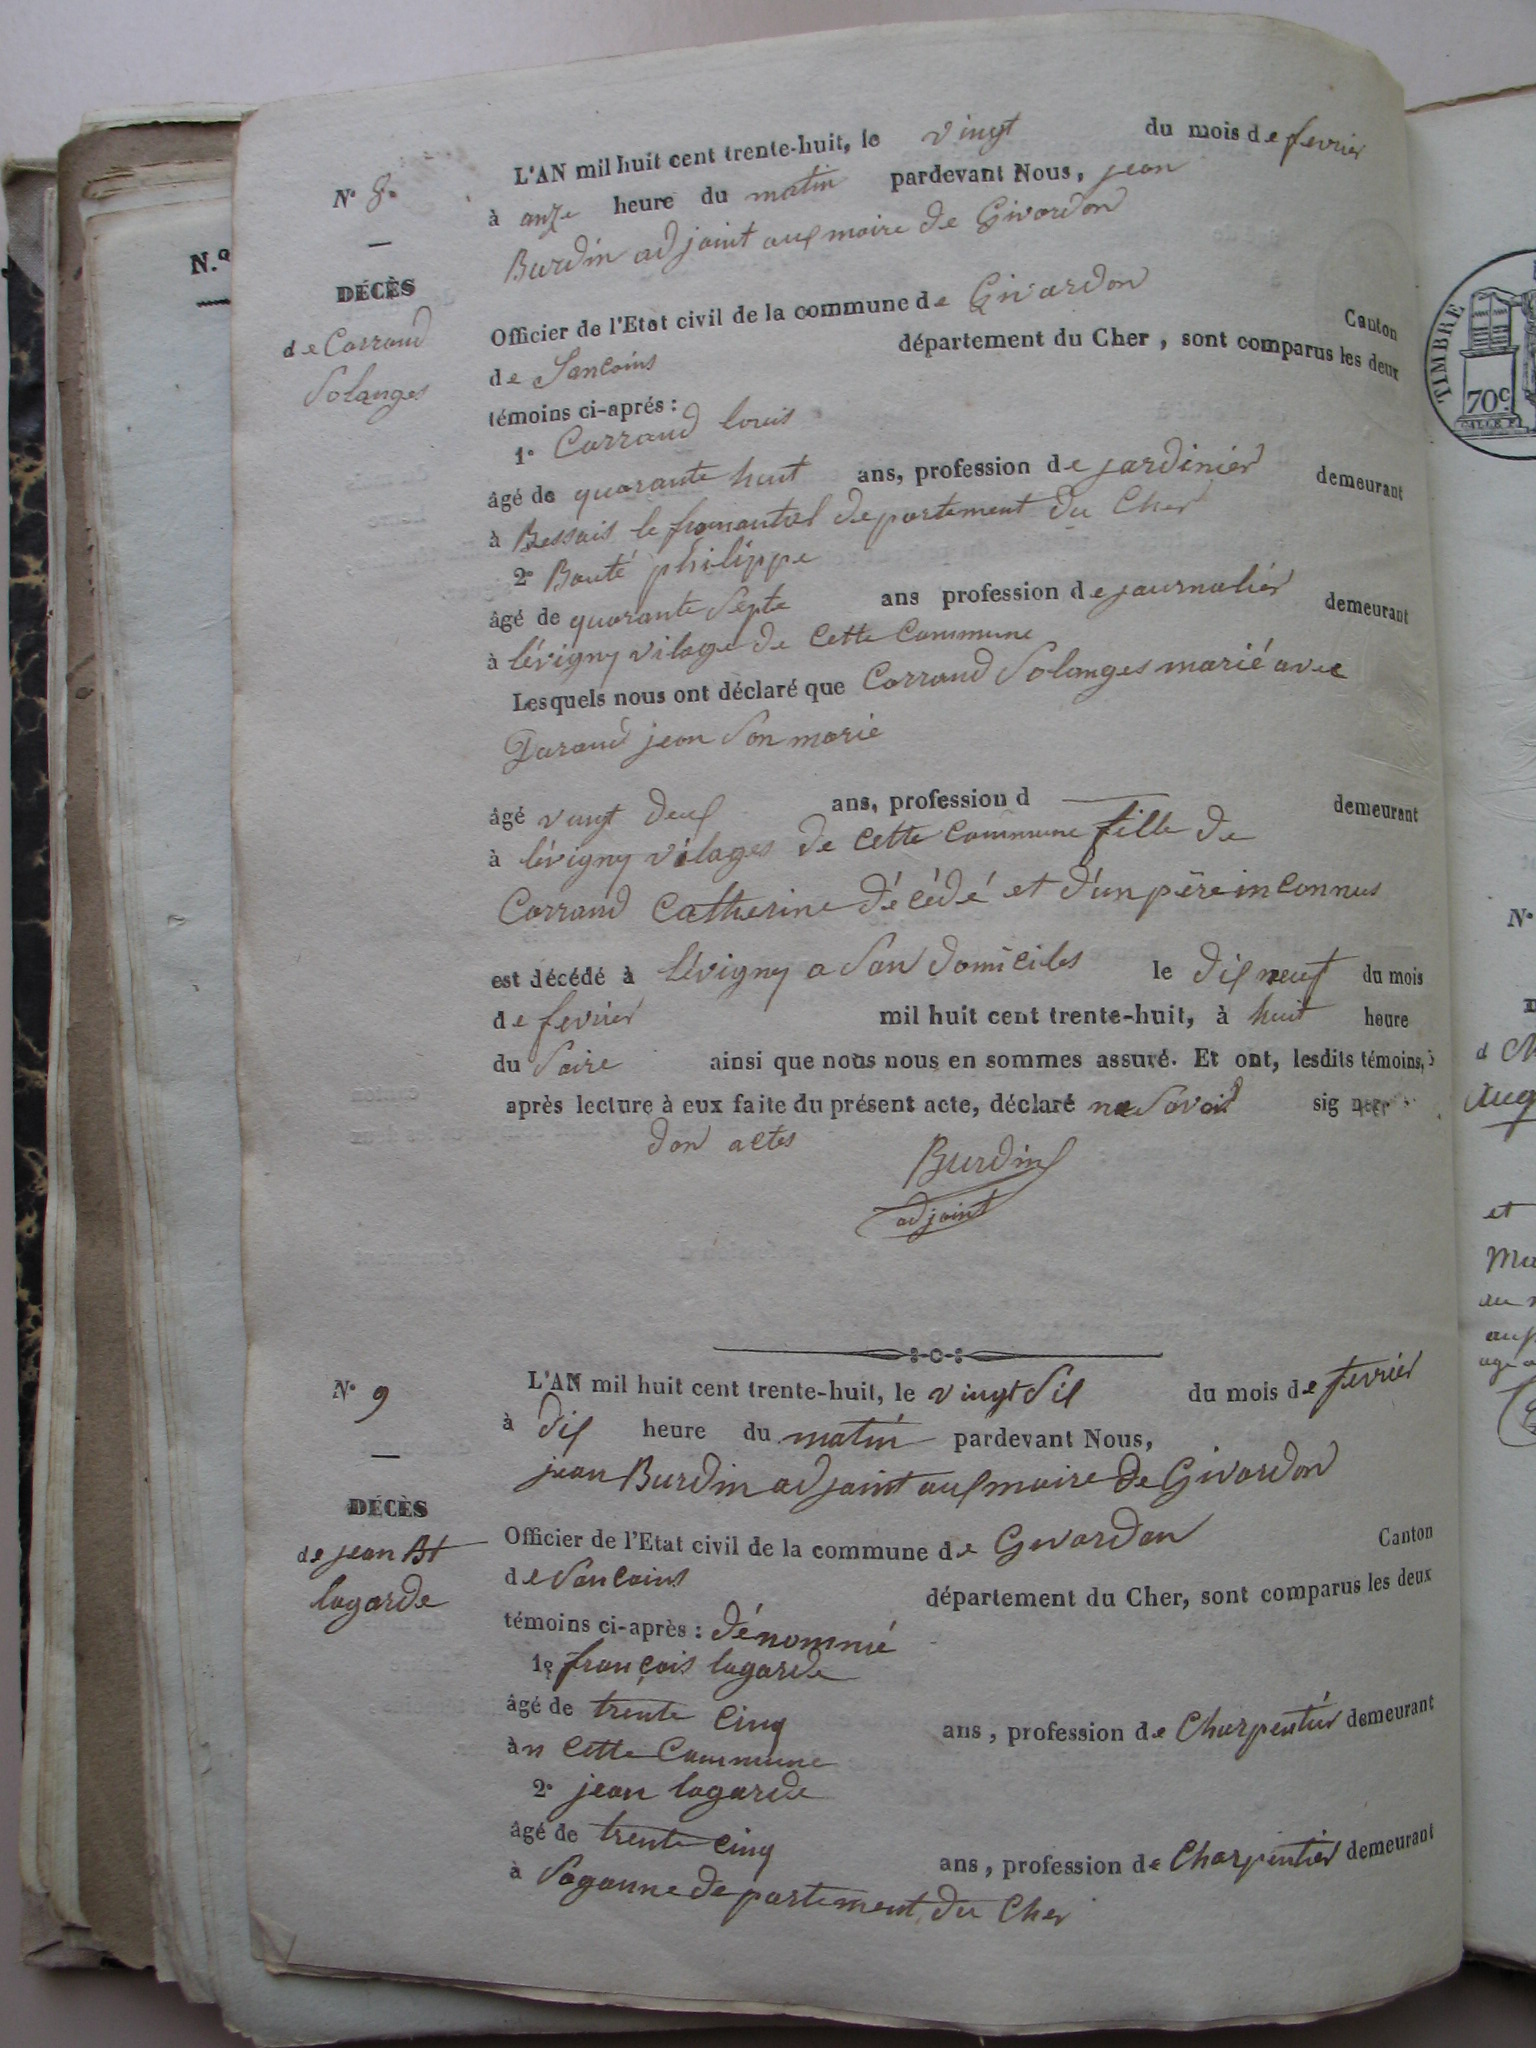 N.º
N° 8.
DÉCÈS
de Carraud
Solanges
L'AN mil huit cent trente-huit, le vingt du mois de fevrier
à onze heure du matin pardevant Nous, jean
Burdin adjoint aux maire de Givardon
Officier de l'Etat civil de la commune de Givardon Canton
de Sancoins département du Cher, sont comparus les deux
témoins ci-aprés :
1° Carraud louis
âgé de quarante huit ans, profession de jardinier demeurant
à Bessais le fromantal departement du Cher
2° Bouté philippe
âgé de quarante Septe ans profession de journalier demeurant
à lévigny vilage de Cette Commune
Lesquels nous ont déclaré que Carraud Solanges marié avec
Durand jean Son marié
âgé vingt deux ans, profession d demeurant
à lévigny vilages de Cette Commune fille de
Carraud Catherine décédé et d'un père inconnus
est décédé à lévigny a Son domiciles le dix neuf du mois
de fevrier mil huit cent trente-huit, à huit heure
du Soire ainsi que nous nous en sommes assuré. Et ont, lesdits témoins,
après lecture à eux faite du présent acte, déclaré ne Savoir signer
don actes
Burdin
adjoint
N° 9
DÉCÈS
de jean Bt
lagarde
L'AN mil huit cent trente-huit, le vingt Six du mois de fevrier
à dix heure du matin pardevant Nous,
jean Burdin adjoint aux maire de Givardon
Officier de l'Etat civil de la commune de Givardon Canton
de Sancoins département du Cher, sont comparus les deux
témoins ci-après : dénommé
1° françois lagarde
âgé de trente Cinq ans, profession de Charpentier demeurant
àn Cette Commune
2° jean lagarde
âgé de trente Cinq ans, profession de Charpentier demeurant
à Sagonne departement du Cher
TIMBRE
70c.
N°
et